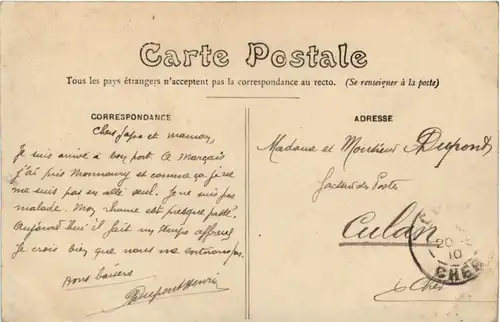 Carte Postale
Tous les pays étrangers n'acceptent pas la correspondance au recto. (Se renseigner à la poste)
CORRESPONDANCE
Cher papa et maman,
Je suis arrivé à bon port. A Marçais
j'ai pris Monmaury et comme ça je ne
me suis pas en allé seul. Je ne suis pas
malade. Mon rhume est presque passé.
Aujourd'hui il fait un temps affreux
Je crois bien que nous ne sortirons pas.
Bons baisers
Dupont Henri
ADRESSE
Madame et Monsieur Dupond
facteur des Postes
Culan
Cher
20
10
CHER